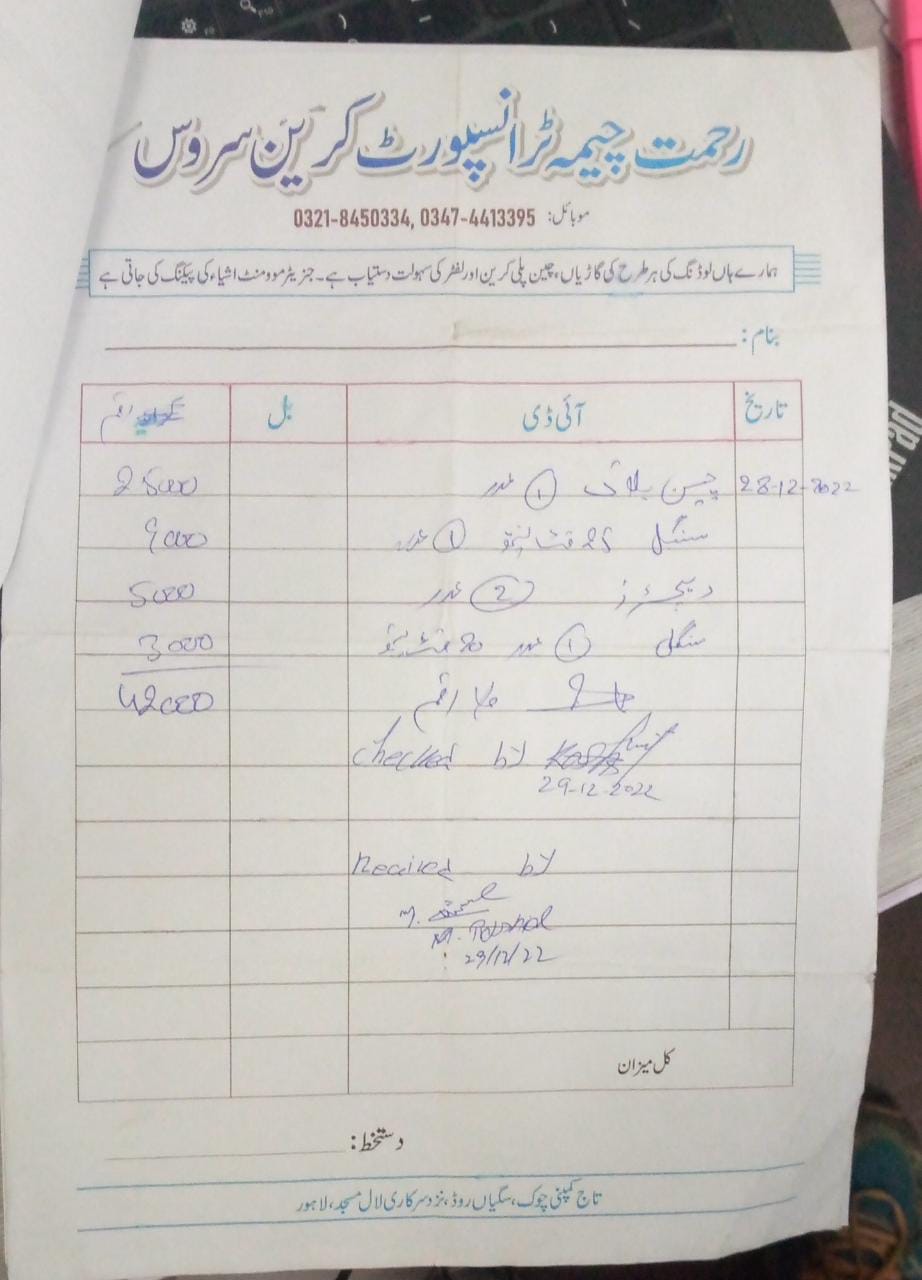 رحمت چیمہ ٹرانسپورٹ کرین سروس
موبائل: 0321-8450334, 0347-4413395
ہمارے ہاں لوڈنگ کی ہر طرح کی گاڑیاں، چین پلی کرین اور لفٹر کی سہولت دستیاب ہے۔ جنریٹر موومنٹ اشیاء کی پیکنگ کی جاتی ہے
بنام:
تاریخ آئی ڈی بل رقم
28-12-2022 چین بلاک 1 عدد 25000
سنگل 25 فٹ 1 عدد 9000
2 عدد 5000
سنگل 1 عدد 20 فٹ 3000
رقم 42000
Checked by
29-12-2022
Recived by
M.
M.
29/12/22
کل میزان
دستخط:
تاج کمپنی چوک، سگیاں روڈ، نزد سرکاری لال مسجد، لاہور